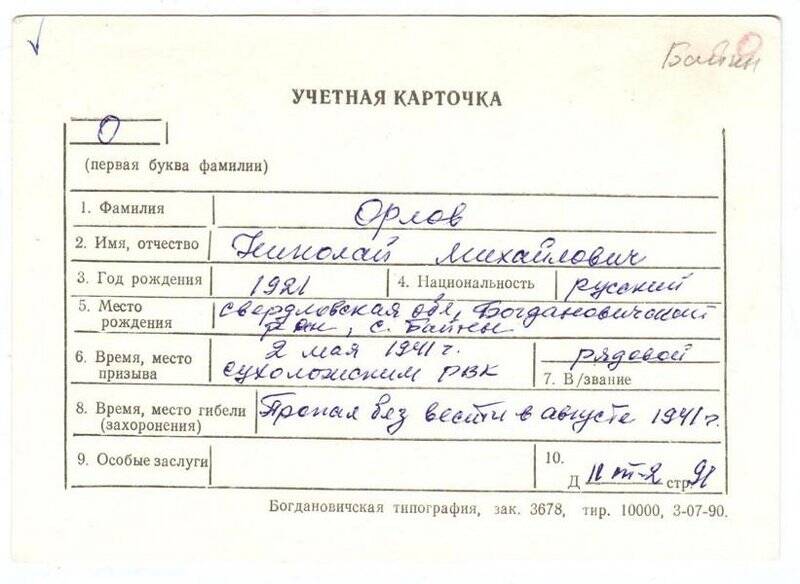 Байны
УЧЕТНАЯ КАРТОЧКА
О
(первая буква фамилии)
1. Фамилия Орлов
2. Имя, отчество Николай Михайлович
3. Год рождения 1921 4. Национальность русский
5. Место рождения Свердловская обл, Богдановичский
р-он, с. Байны
6. Время, место призыва 2 мая 1941 г.
Сухоложским РВК
рядовой
7. В/звание
8. Время, место гибели (захоронения) Пропал без вести в августе 1941 г.
9. Особые заслуги
10.
Д стр. 91
Богдановичская типография, зак. 3678, тир. 10000, 3-07-90.